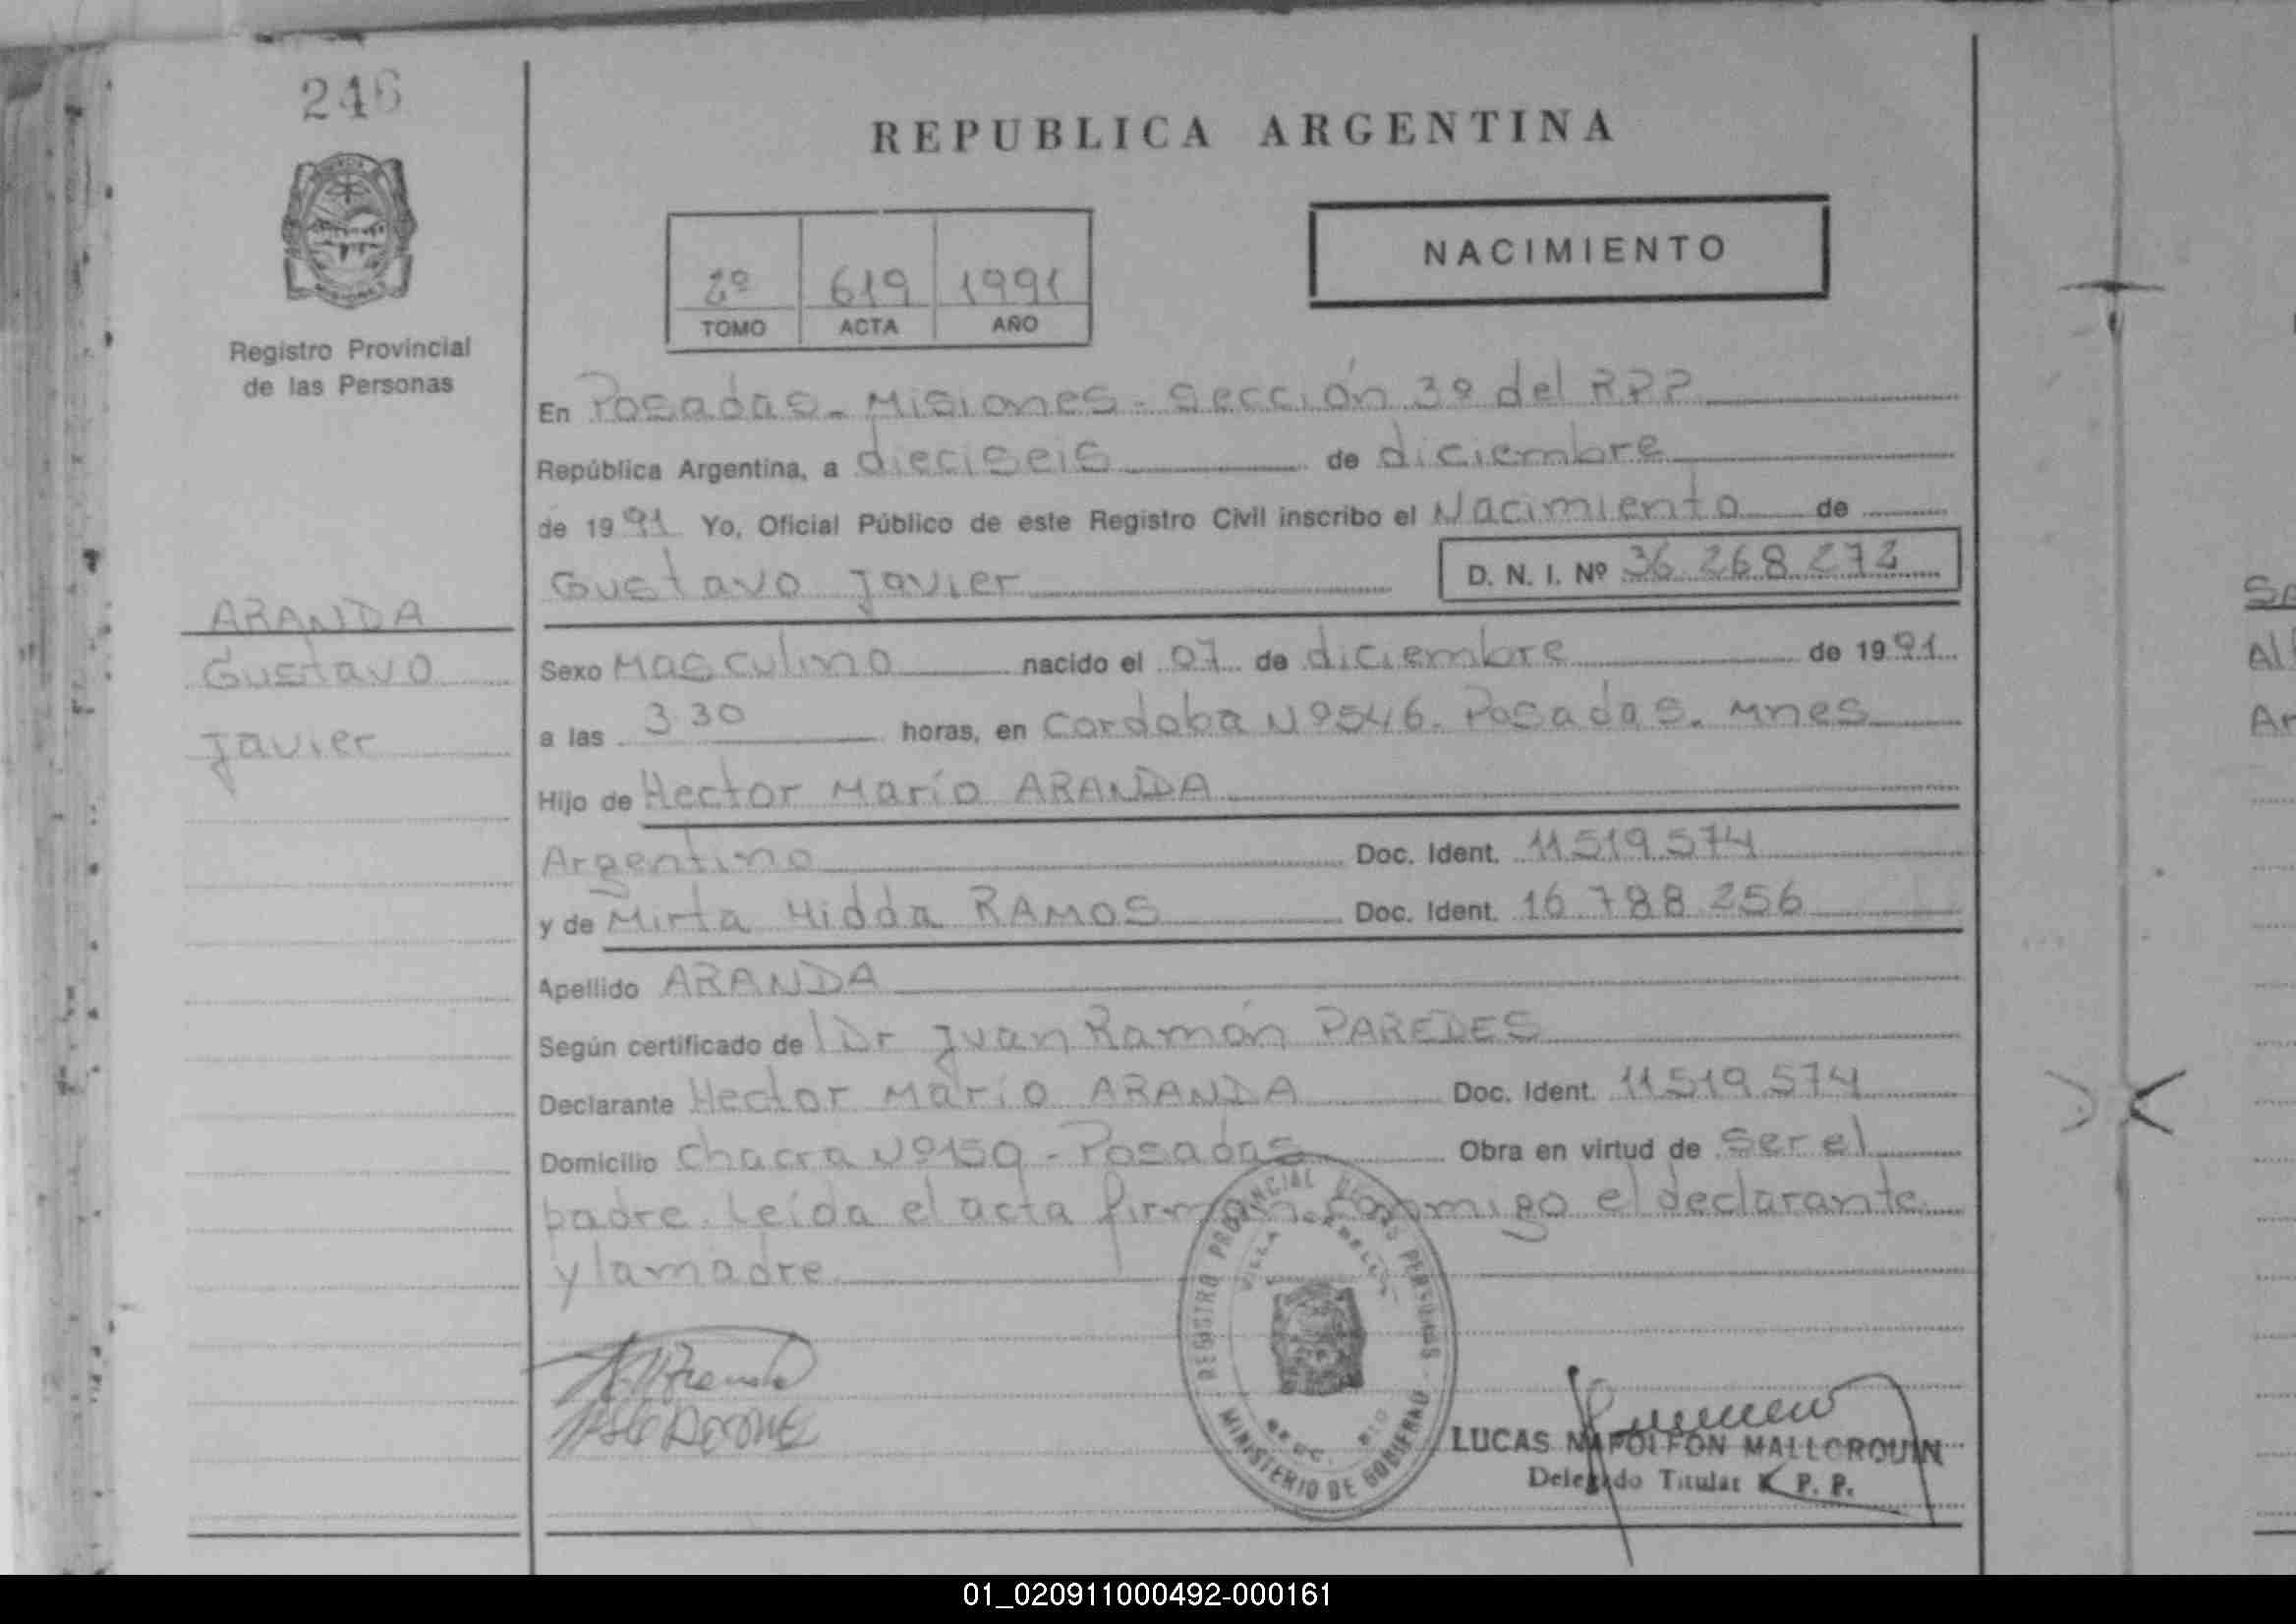 246
Registro Provincial
de las Personas
ARANDA
Gustavo
Javier
REPUBLICA ARGENTINA
2º 619 1991
TOMO ACTA AÑO
NACIMIENTO
En Posadas - Misiones - Sección 3º del RPP
República Argentina, a dieciseis de diciembre
de 1991 Yo, Oficial Público de este Registro Civil inscribo el Nacimiento de
Gustavo Javier D. N. I. Nº 36.268.272
Sexo Masculino nacido el 07 de diciembre de 1991
a las 3 30 horas, en Cordoba Nº 546. Posadas. Mnes
Hijo de Hector Mario ARANDA
Argentino Doc. Ident. 11.519.574
y de Mirta Hidda RAMOS Doc. Ident. 16.788.256
Apellido ARANDA
Según certificado de Dr Juan Ramón PAREDES
Declarante Hector Mario ARANDA Doc. Ident. 11.519.574
Domicilio Chacra Nº 159 - Posadas Obra en virtud de ser el
padre. Leída el acta firman conmigo el declarante
y la madre
REGISTRO PROVINCIAL DE LAS PERSONAS
VILLA
MINISTERIO DE GOBIERNO
LUCAS NAPOLEON MALLORQUIN
Delegado Titular R. P. P.
SA
Al
Ar
01_020911000492-000161